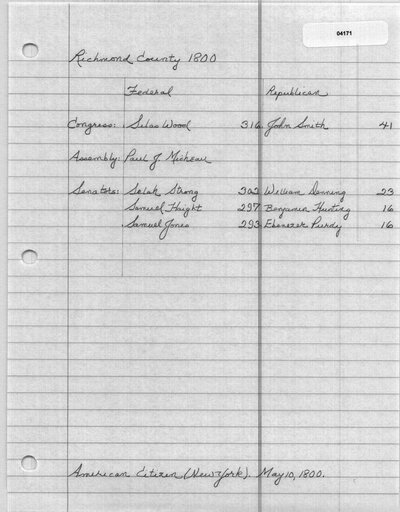 04171
Richmond County 1800
Federal Republican
Congress: Silas Wood 316 John Smith 41
Assembly: Paul J. Micheau
Senators: Selah Strong 302 William Denning 23
Samuel Haight 297 Benjamin Hunting 16
Samuel Jones 293 Ebenezer Purdy 16
American Citizen (New York). May 10, 1800.